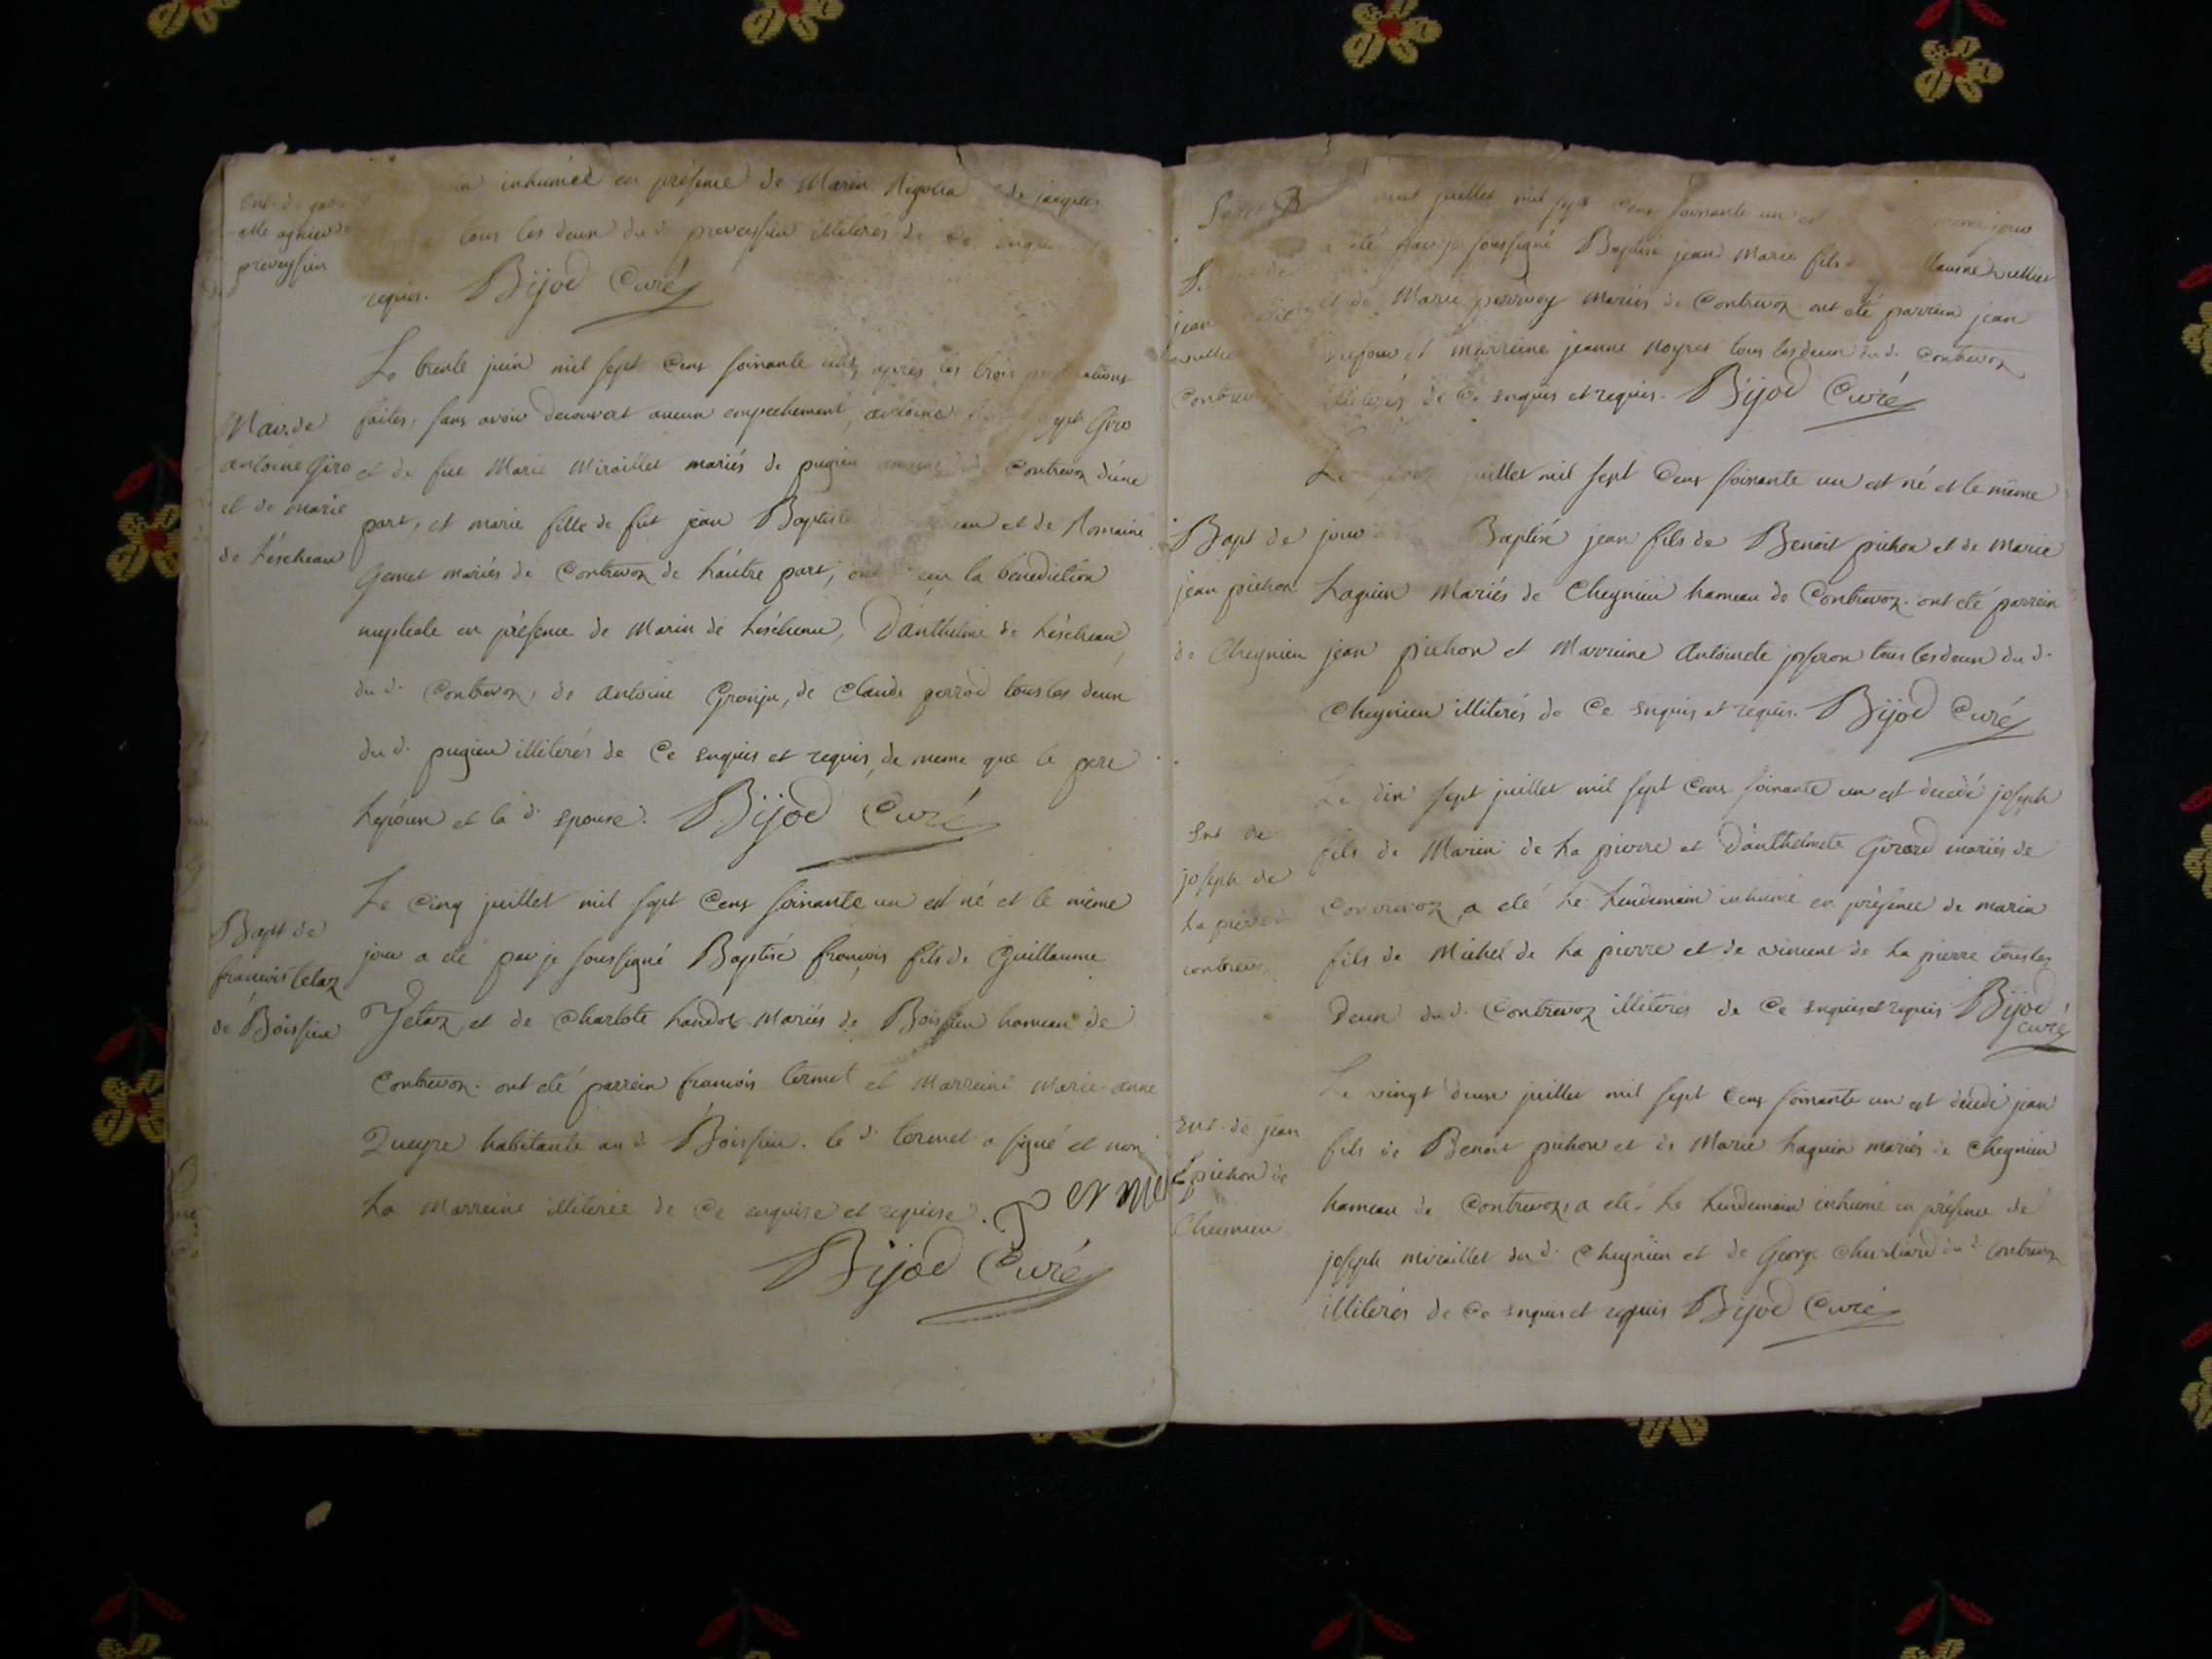 inhumée en présence de Marin Rigolla de jacques
tous les deux du d. preveissieu illiterés de ce enquis
requis. Bijod Curé
preveyssieu
Le trente juin mil sept cens soixante un, après les trois
faites, sans avoir decouvert aucun empechement, antoine Giro
Mar. de
antoine Giro
et de marie
de Léscheau
et de fue Marie Miraillet mariés de pugieu Contrevoz d'une
part, et marie fille de fut jean Baptiste et de Romaine
Gemet mariés de Contrevoz de láutre part, ont la benediction
nuptiale en présence de Marin de Léscheau, D'anthelme de Léscheau,
du d. Contrevoz, de Antoine Granju, de Claude perrod tous les deux
du d. pugieu illiterés de Ce enquis et requis, de meme que le pere
Lépoux et la d. epouse. Bijod Curé
Bapt de
francois Tetaz
de Boissieu
Le Cinq juillet mil sept Cens soixante un est né et le même
jour a été par je soussigné Baptisé francois fils de Guillaume
Tetaz et de Charlote Landoz Mariés de Boissieu hameau de
Contrevoz. ont été parrein francois termet et Marreine Marie-anne
Dueyre habitante au d. Boissieu. le d. termet a signé et non
La Marreine illiterée de Ce enquise et requise. Termet
Bijod Curé
juillet mil sept Cens soixante un est
a été par je soussigné Baptisé jean Marie fils
et de Marie perrvoy Mariés de Contrevoz ont été parrein jean
et Marreine jeanne Noyret tous les deux du d. Contrevoz
illiterés de Ce enquis et requis. Bijod Curé
Le juillet mil sept Cens soixante un est né et le même
Bapt de
jean pichon
de Cheynieu
jour Baptisé jean fils de Benoit pichon et de Marie
Laguin Mariés de Cheynieu hameau de Contrevoz. ont été parrein
jean pichon et Marreine Antoinete josseron tous les deux du d.
Cheynieu illiterés de Ce enquis et requis. Bijod Curé
Le dix sept juillet mil sept Cens soixante un est decedé joseph
Ent de
joseph de
La pierre
contrevoz
fils de Marin de La pierre et D'anthelmete Girard mariés de
Contrevoz, a été Le Lendemain inhumé en présence de marin
fils de Michel de La pierre et de vincent de La pierre tous les
Deux du d. Contrevoz illiterés de Ce enquis et requis Bijod
curé
Le vingt deux juillet mil sept Cens soixante un est decedé jean
Ent. de jean
pichon de
Cheynieu
fils de Benoit pichon et de Marie Laguin mariés de Cheynieu
hameau de Contrevoz, a été Le Lendemain inhumé en présence de
joseph miraillet du d. Cheynieu et de George du d. Contrevoz
illiterés de Ce enquis et requis Bijod Curé